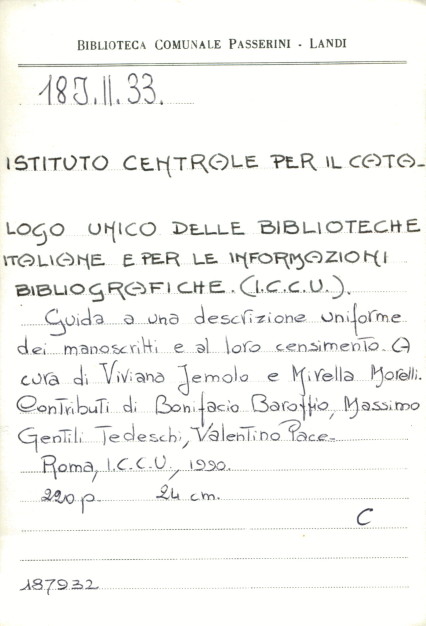 BIBLIOTECA COMUNALE PASSERINI - LANDI
18J.II.33.
ISTITUTO CENTRALE PER IL CATA-
LOGO UNICO DELLE BIBLIOTECHE
ITALIANE E PER LE INFORMAZIONI
BIBLIOGRAFICHE. (I.C.C.U.).
Guida a una descrizione uniforme
dei manoscritti e al loro censimento. A
cura di Viviana Jemolo e Mirella Morelli.
Contributi di Bonifacio Baroffio, Massimo
Gentili Tedeschi, Valentino Pace.
Roma, I.C.C.U., 1990.
220 p. 24 cm.
C
187932